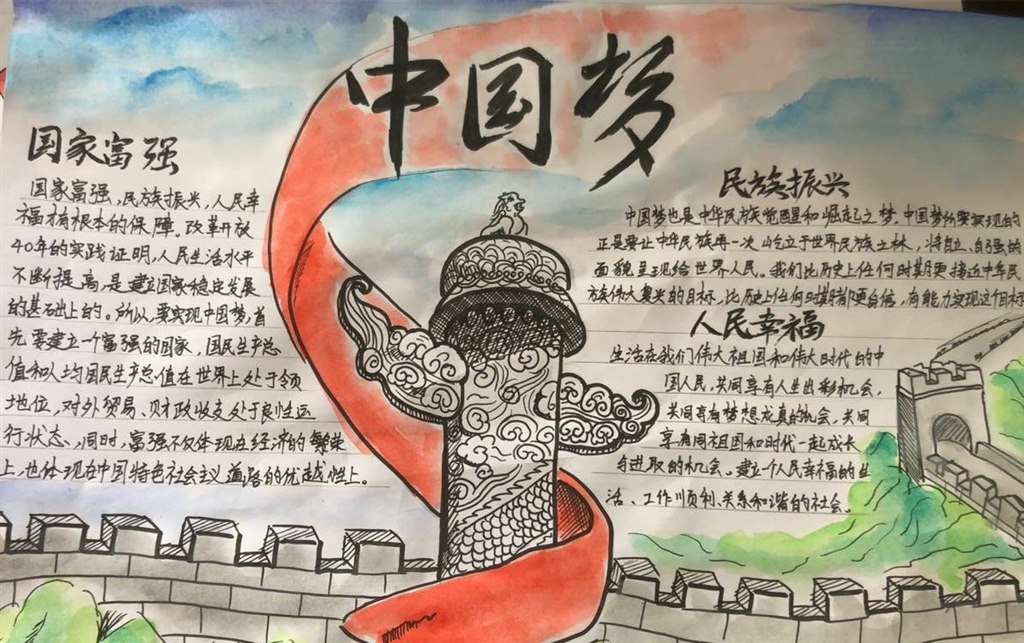 中国梦
国家富强
国家富强,民族振兴,人民幸
福才有根本的保障。改革开放
40年的实践证明,人民生活水平
不断提高,是建立国家稳定发展
的基础上的。所以,要实现中国梦,首
先要建立一个富强的国家,国民生产总
值和人均国民生产总值在世界上处于领
地位,对外贸易、财政收支处于良性运
行状态,同时,富强不仅体现在经济的繁荣
上,也体现在中国特色社会主义道路的优越性上。
民族振兴
中国梦也是中华民族觉醒和崛起之梦,中国梦所要实现的
正是要让中华民族再一次屹立于世界民族之林,将自立、自强的
面貌呈现给世界人民。我们比历史上任何时期更接近中华民
族伟大复兴的目标,比历史上任何时期都更自信,有能力实现这个目标
人民幸福
生活在我们伟大祖国和伟大时代的中
国人民,共同享有人生出彩机会,
共同享有梦想成真的机会,共同
享有同祖国和时代一起成长
与进取的机会。建立个人民幸福的生
活、工作顺利、关系和谐的社会。